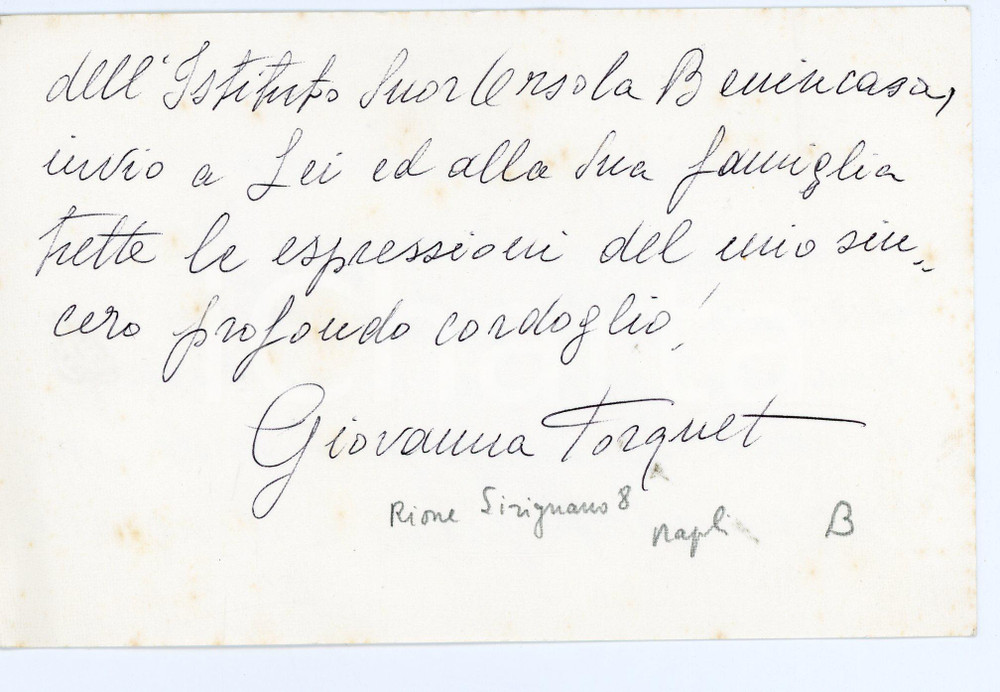 dell'Istituto Suor Orsola Benincasa,
invio a Lei ed alla Sua famiglia
tutte le espressioni del mio sin„
cero profondo cordoglio!
Giovanna Torquet
Rione Sirignano 8
Napli
B